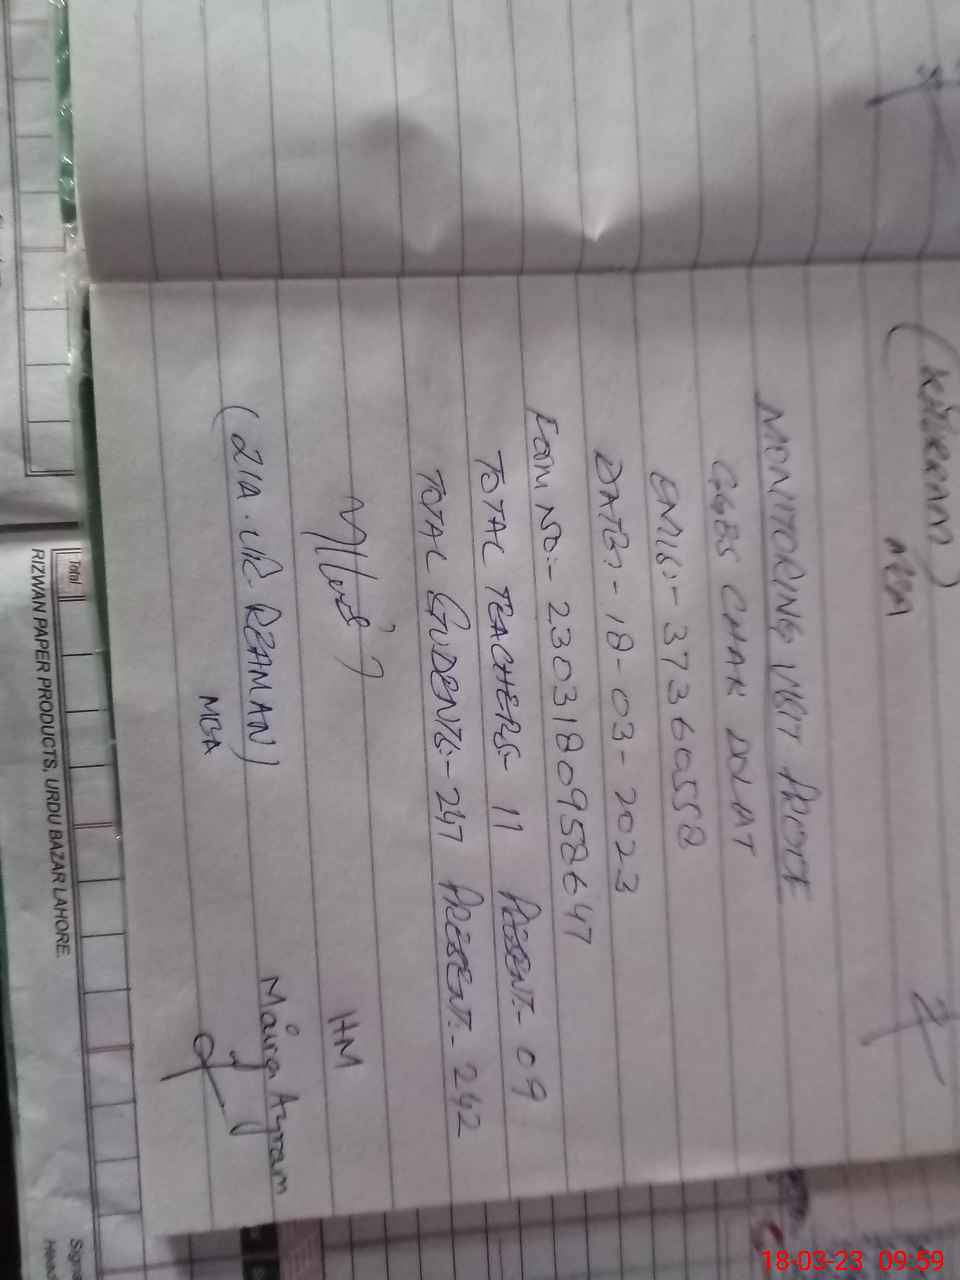 (KHURRAM)
MEA
MONITORING VISIT PROOF
GGES CHAK DOLAT
EMIS:- 37360558
DATE:- 18-03-2023
FORM NO:- 2303180958647
TOTAL TEACHERS:- 11 PRESENT:- 09
TOTAL STUDENTS:- 247 PRESENT:- 242
HM
(ZIA. UR. REHMAN)
MEA
Maira Azram
Total
RIZWAN PAPER PRODUCTS, URDU BAZAR LAHORE.
18-03-23 09:59